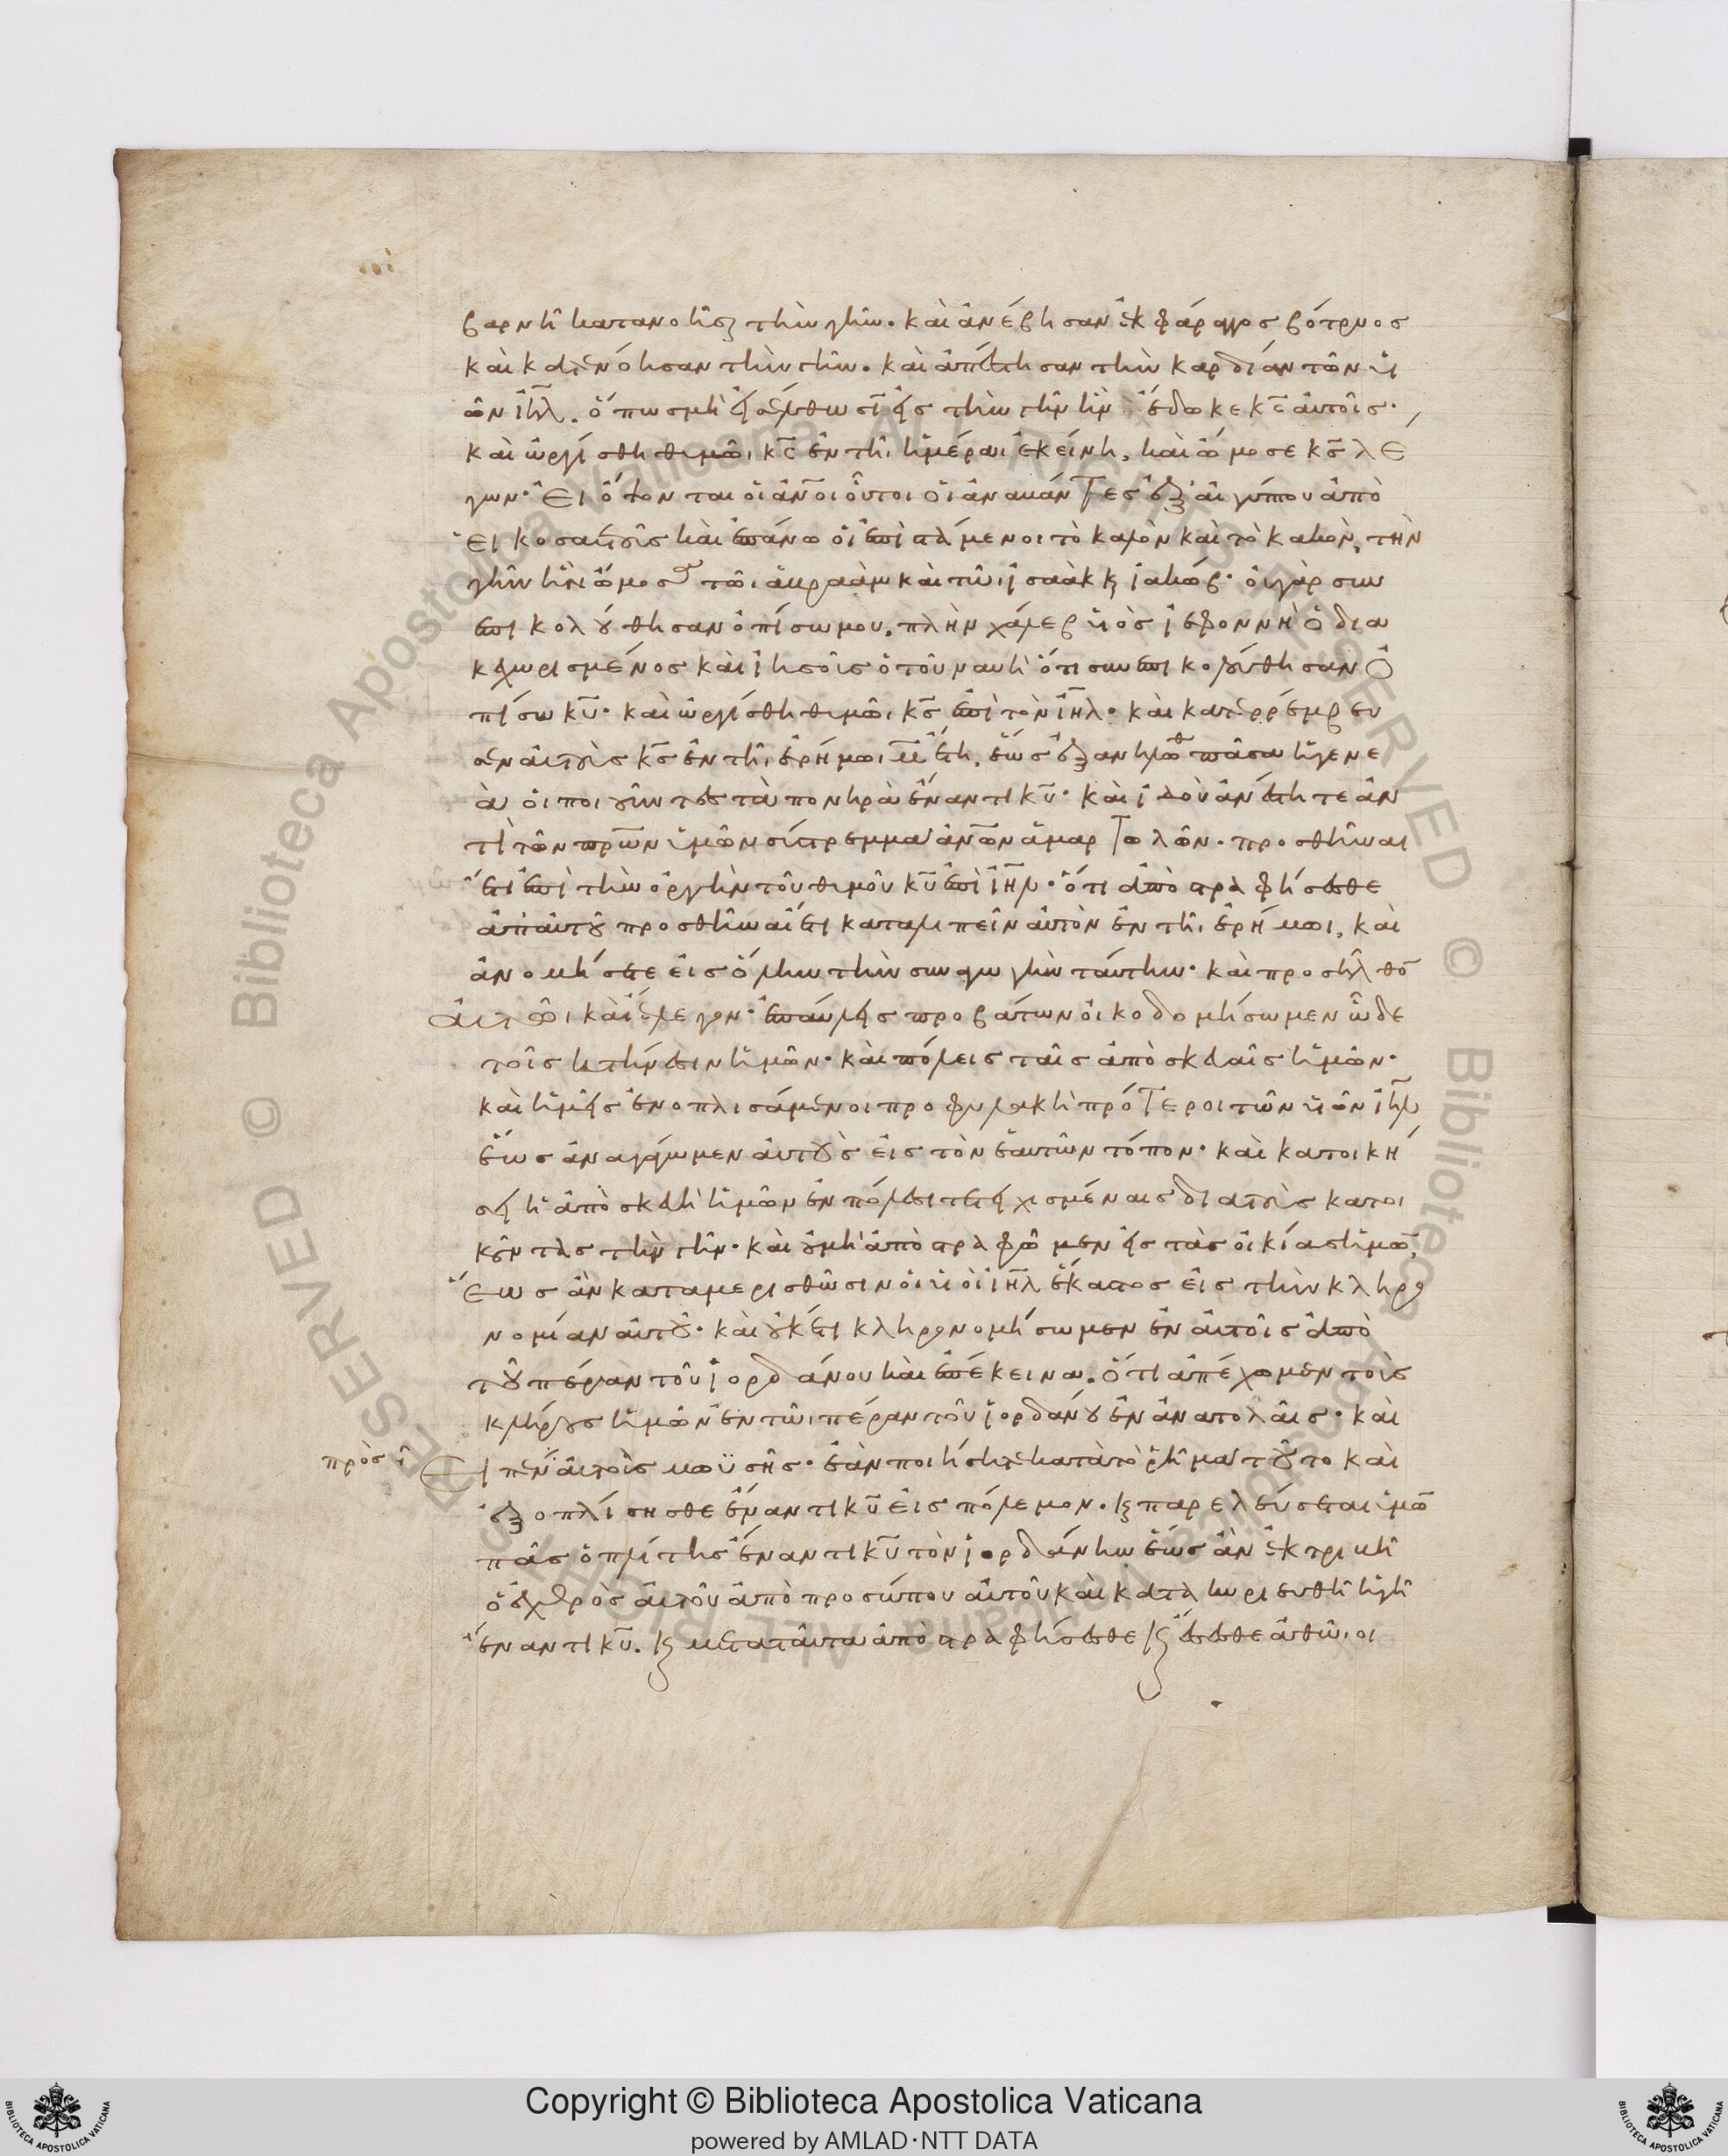 βαρνὴ κατανοῆσαι τὴν γῆν· καὶ ἀνέβησαν ἐκ φάραγγος βότρυος
καὶ κατενόησαν τὴν γῆν· καὶ ἀπέστησαν τὴν καρδίαν τῶν υἱ
ῶν ἰηλ. ὅπως μὴ εἰσέλθωσι εἰς τὴν γῆν ἣν ἔδωκε κς αὐτοῖς·
καὶ ὠργίσθη θυμῶι κς ἐν τῆι ἡμέραι ἐκείνη, καὶ ὤμοσε κς λε
γων· Εἰ ὄψονται οἱ ἀνοι οὗτοι οἱ ἀναβάντες ἐξ αἰγύπτου ἀπὸ
εἰκοσαετοῦς καὶ ἐπάνω οἱ ἐπιστάμενοι τὸ καλὸν καὶ τὸ κακὸν, τὴν
γῆν ἣν ὤμοσα τῶι ἀβραὰμ καὶ τῶι ἰσαὰκ κ ἰακώβ· οὐ γὰρ συν
επικολούθησαν ὀπίσω μου, πλὴν χάλεβ υἱὸς ἰεφοννὴ ὁ δια
κεχωρισμένος καὶ ἰησοῦς ὁ τοῦ ναυὴ ὅτι συνεπικολούθησαν ὀ
πίσω κυ· καὶ ὠργίσθη θυμῶι κς ἐπὶ τὸν ἰηλ· καὶ κατερρέμβευ
σεν αὐτοὺς κς ἐν τῆι ἐρήμωι μ ἔτη, ἕως ἐξανηλώθη πᾶσα ἡ γενε
ὰ οἱ ποιοῦντες τὰ πονηρὰ ἔναντι κυ· καὶ ἰδοὺ ἀνέστητε ἀν
τὶ τῶν πρων ὑμῶν σύντρεμμα ἀνων ἁμαρτωλῶν· προσθῆναι
ἔτι ἐπὶ τὴν ὀργὴν τοῦ θυμοῦ κυ ἐπὶ ἰηλ· ὅτι ἀποστραφήσεσθε
ἀπ' αὐτοῦ προσθῆναι ἔτι καταλιπεῖν αὐτὸν ἐν τῆι ἐρήμωι, καὶ
ἀνομήσετε εἰς ὅλην τὴν συναγωγὴν ταύτην· καὶ προσῆλθο
αὐτῶι καὶ ἔλεγον· ἐπαύλεις προβάτων οἰκοδομήσωμεν ὧδε
τοῖς κτήνεσιν ἡμῶν· καὶ πόλεις ταῖς ἀποσκευαῖς ἡμῶν·
καὶ ἡμεῖς ἐνοπλισάμενοι προφυλακὴ πρότεροι τῶν υἱῶν ἰηλ
ἕως ἂν ἀγάγωμεν αὐτοὺς εἰς τὸν ἑαυτῶν τόπον· καὶ κατοική
σει ἡ ἀποσκευὴ ἡμῶν ἐν πόλεσι τετειχισμέναις διὰ τοὺς κατοι
κοῦντας τὴν γῆν· καὶ οὐ μὴ ἀποστραφῶμεν εἰς τὰς οἰκίας ἡμῶ,
ἕως ἂν καταμερισθῶσιν οἱ υἱοὶ ἰηλ ἕκαστος εἰς τὴν κληρο
νομίαν αὐτοῦ· καὶ οὐκέτι κληρονομήσωμεν ἐν αὐτοῖς ἀπὸ
τοῦ πέραν τοῦ ἰορδάνου καὶ ἐπέκεινα. ὅτι ἀπέχομεν τοὺς
κλήρους ἡμῶν ἐν τῶι πέραν τοῦ ἰορδάνου ἐν ἀνατολαῖς· καὶ
Εἶπεν αὐτοῖς μωϋσῆς· ἐὰν ποιήσητε κατὰ τὸ ῥῆμα τοῦτο καὶ
ἐξοπλίσησθε ἔναντι κυ εἰς πόλεμον. κ παρελεύσεται ὑμῶ
πᾶς ὁπλίτης ἔναντι κυ τὸν ἰορδάνην ἕως ἂν ἐκτριβῆ
ὁ ἐχθρὸς αὐτοῦ ἀπὸ προσώπου αὐτοῦ καὶ κατακυριευθῆ ἡ γῆ
ἔναντι κυ. κ μετὰ ταῦτα ἀποστραφήσεσθε κ ἔσεσθε ἀθῶιοι